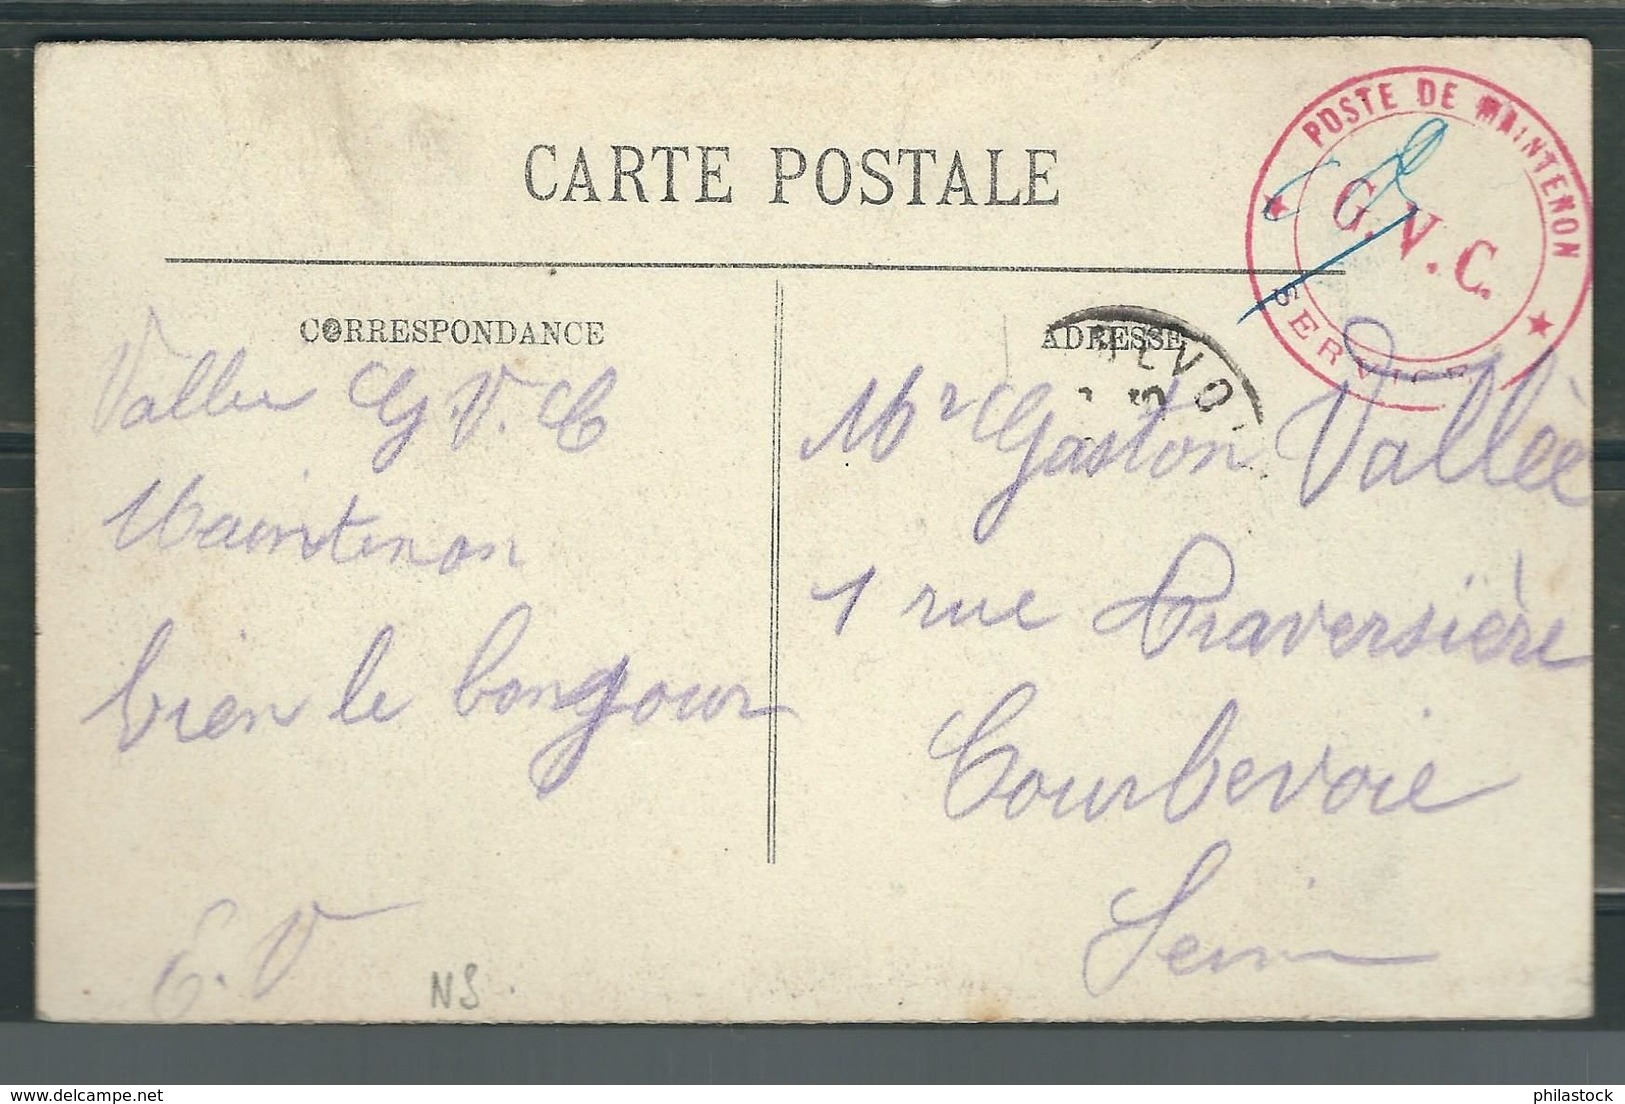 CARTE POSTALE
POSTE DE MAINTENON
G.V.C.
SERVICE
CORRESPONDANCE
ADRESSE
Vallée G V. C
Maintenon
bien le bonjour
E. V
NS.
Mr Gaston Vallée
1 rue Traversière
Courbevoie
Seine
philastock